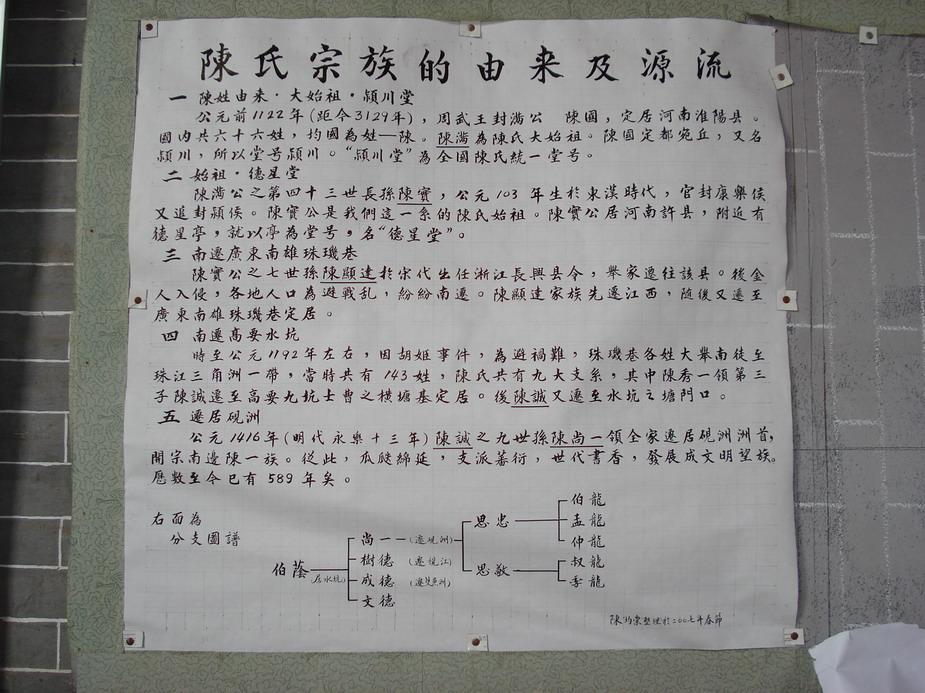 陳氏宗族的由来及源流
一 陳姓由来·大始祖·潁川堂
公元前1122年(距今3129年),周武王封滿公 陳國,定居河南淮陽县。
國内共六十六姓,均國為姓—陳。陳滿為陳氏大始祖。陳國定都宛丘,又名
潁川,所以堂号潁川。“潁川堂”為全國陳氏統一堂号。
二 始祖·德星堂
陳滿公之第四十三世長孫陳實,公元103年生於東漢時代,官封康樂侯
又追封潁侯。陳實公是我們這一系的陳氏始祖。陳實公居河南許县,附近有
德星亭,就以亭為堂号,名“德星堂”。
三 南遷廣東南雄珠璣巷
陳實公之七世孫陳顯達於宋代生任浙江長興县令,舉家遷往該县。後金
人入侵,各地人口為避戰乱,紛紛南遷。陳顯達家族先遷江西,随後又遷至
廣東南雄珠璣巷定居。
四 南遷高要水坑
時至公元1192年左右,因胡姬事件,為避禍難,珠璣巷各姓大舉南徙至
珠江三角洲一帶,當時共有143姓,陳氏共有九大支系,其中陳秀一領第三
子陳誠遷至高要九坑士曹之橫塘基定居。後陳誠又遷至水坑之塘門口。
五 遷居硯洲
公元1416年(明代永樂十三年)陳誠之九世孫陳尚一領全家遷居硯洲洲首,
開宗南邊陳一族。從此,瓜瓞綿延,支派蕃衍,世代書香,發展成文明望族。
歷數至今已有589年矣。
右面為
分支圖譜
伯蔭 居水坑
尚一 (遷硯洲)
樹德 (遷硯江)
成德
文德
思忠
思敬
伯龍
孟龍
仲龍
叔龍
季龍
整理於二00七年春節